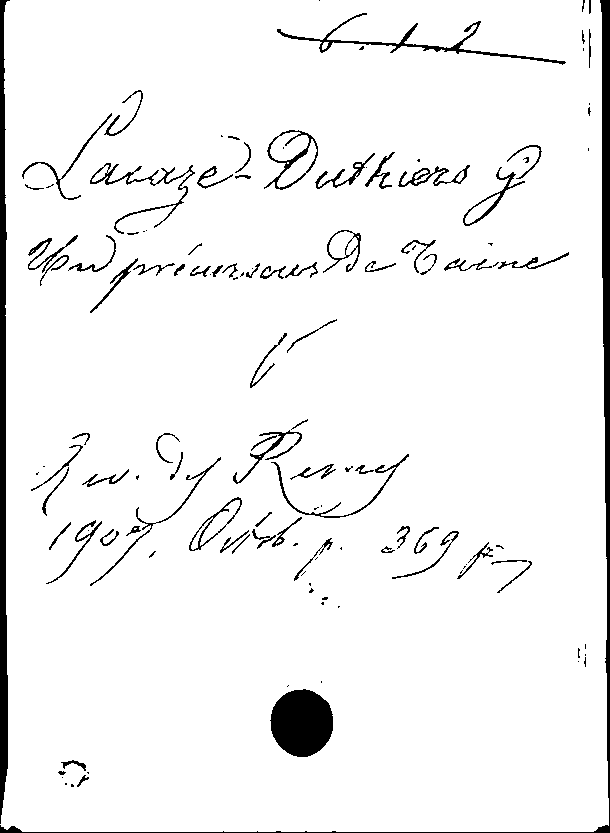 6.1.2
Lacaze-Duthiers G
Un précurseur De Taine
Rev. des Revues
1907, Octob. p. 369